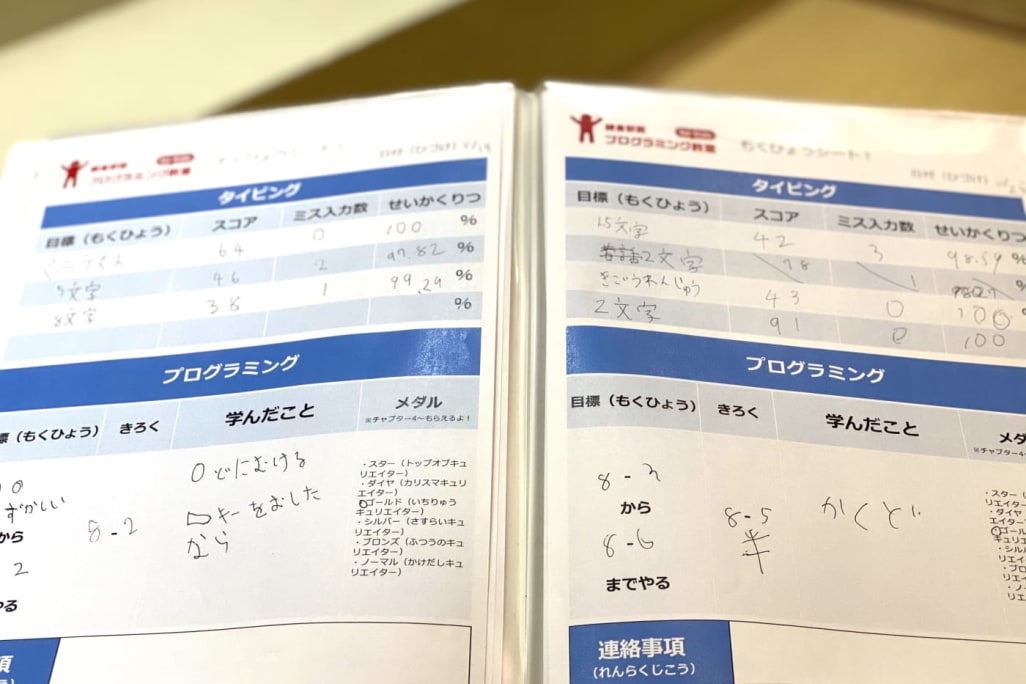 プログラミング教室
もくひょうシート！
日付（ひづけ）
タイピング
目標（もくひょう） スコア ミス入力数 せいかくりつ
64 0 100 %
5文字 46 2 97.82 %
8文字 38 1 99.29 %
%
プログラミング
標（もくひょう） きろく 学んだこと メダル
※チャプター4～もらえるよ！
ずかしい
から
2
やる
8-2
0どにむける
キーをおした
なら
・スター（トップオブキュ
リエイター）
・ダイヤ（カリスマキュリ
エイター）
・ゴールド（いちりゅう
キュリエイター）
・シルバー（さすらいキュ
リエイター）
・ブロンズ（ふつうのキュ
リエイター）
・ノーマル（かけだしキュ
リエイター）
項
プログラミング教室
もくひょうシート！
日付（ひづけ）
タイピング
目標（もくひょう） スコア ミス入力数 せいかくりつ
1.5文字 42 3 98.59 %
2文字 78 1
きごうれんしゅう 43 0 100
2文字 91 0 100
プログラミング
目標（もくひょう） きろく 学んだこと メダ
※チャプター4～
8-3
から
8-6
までやる
8-5
半
かくど
・スター（
リエイター
・ダイヤ
エイター
・ゴール
キュリエ
・シル
リエイ
・ブロ
リエ
・ノ
リエ
連絡事項
（れんらくじこう）